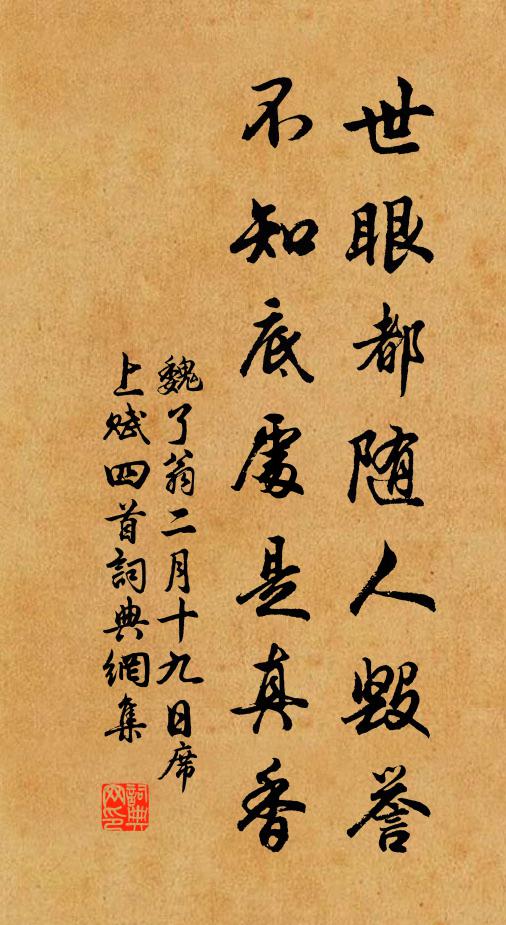 世眼都随人毁誉
不知底處是真香
魏了翁二月十九日席
上赋四首詞典網集
詞典
网印